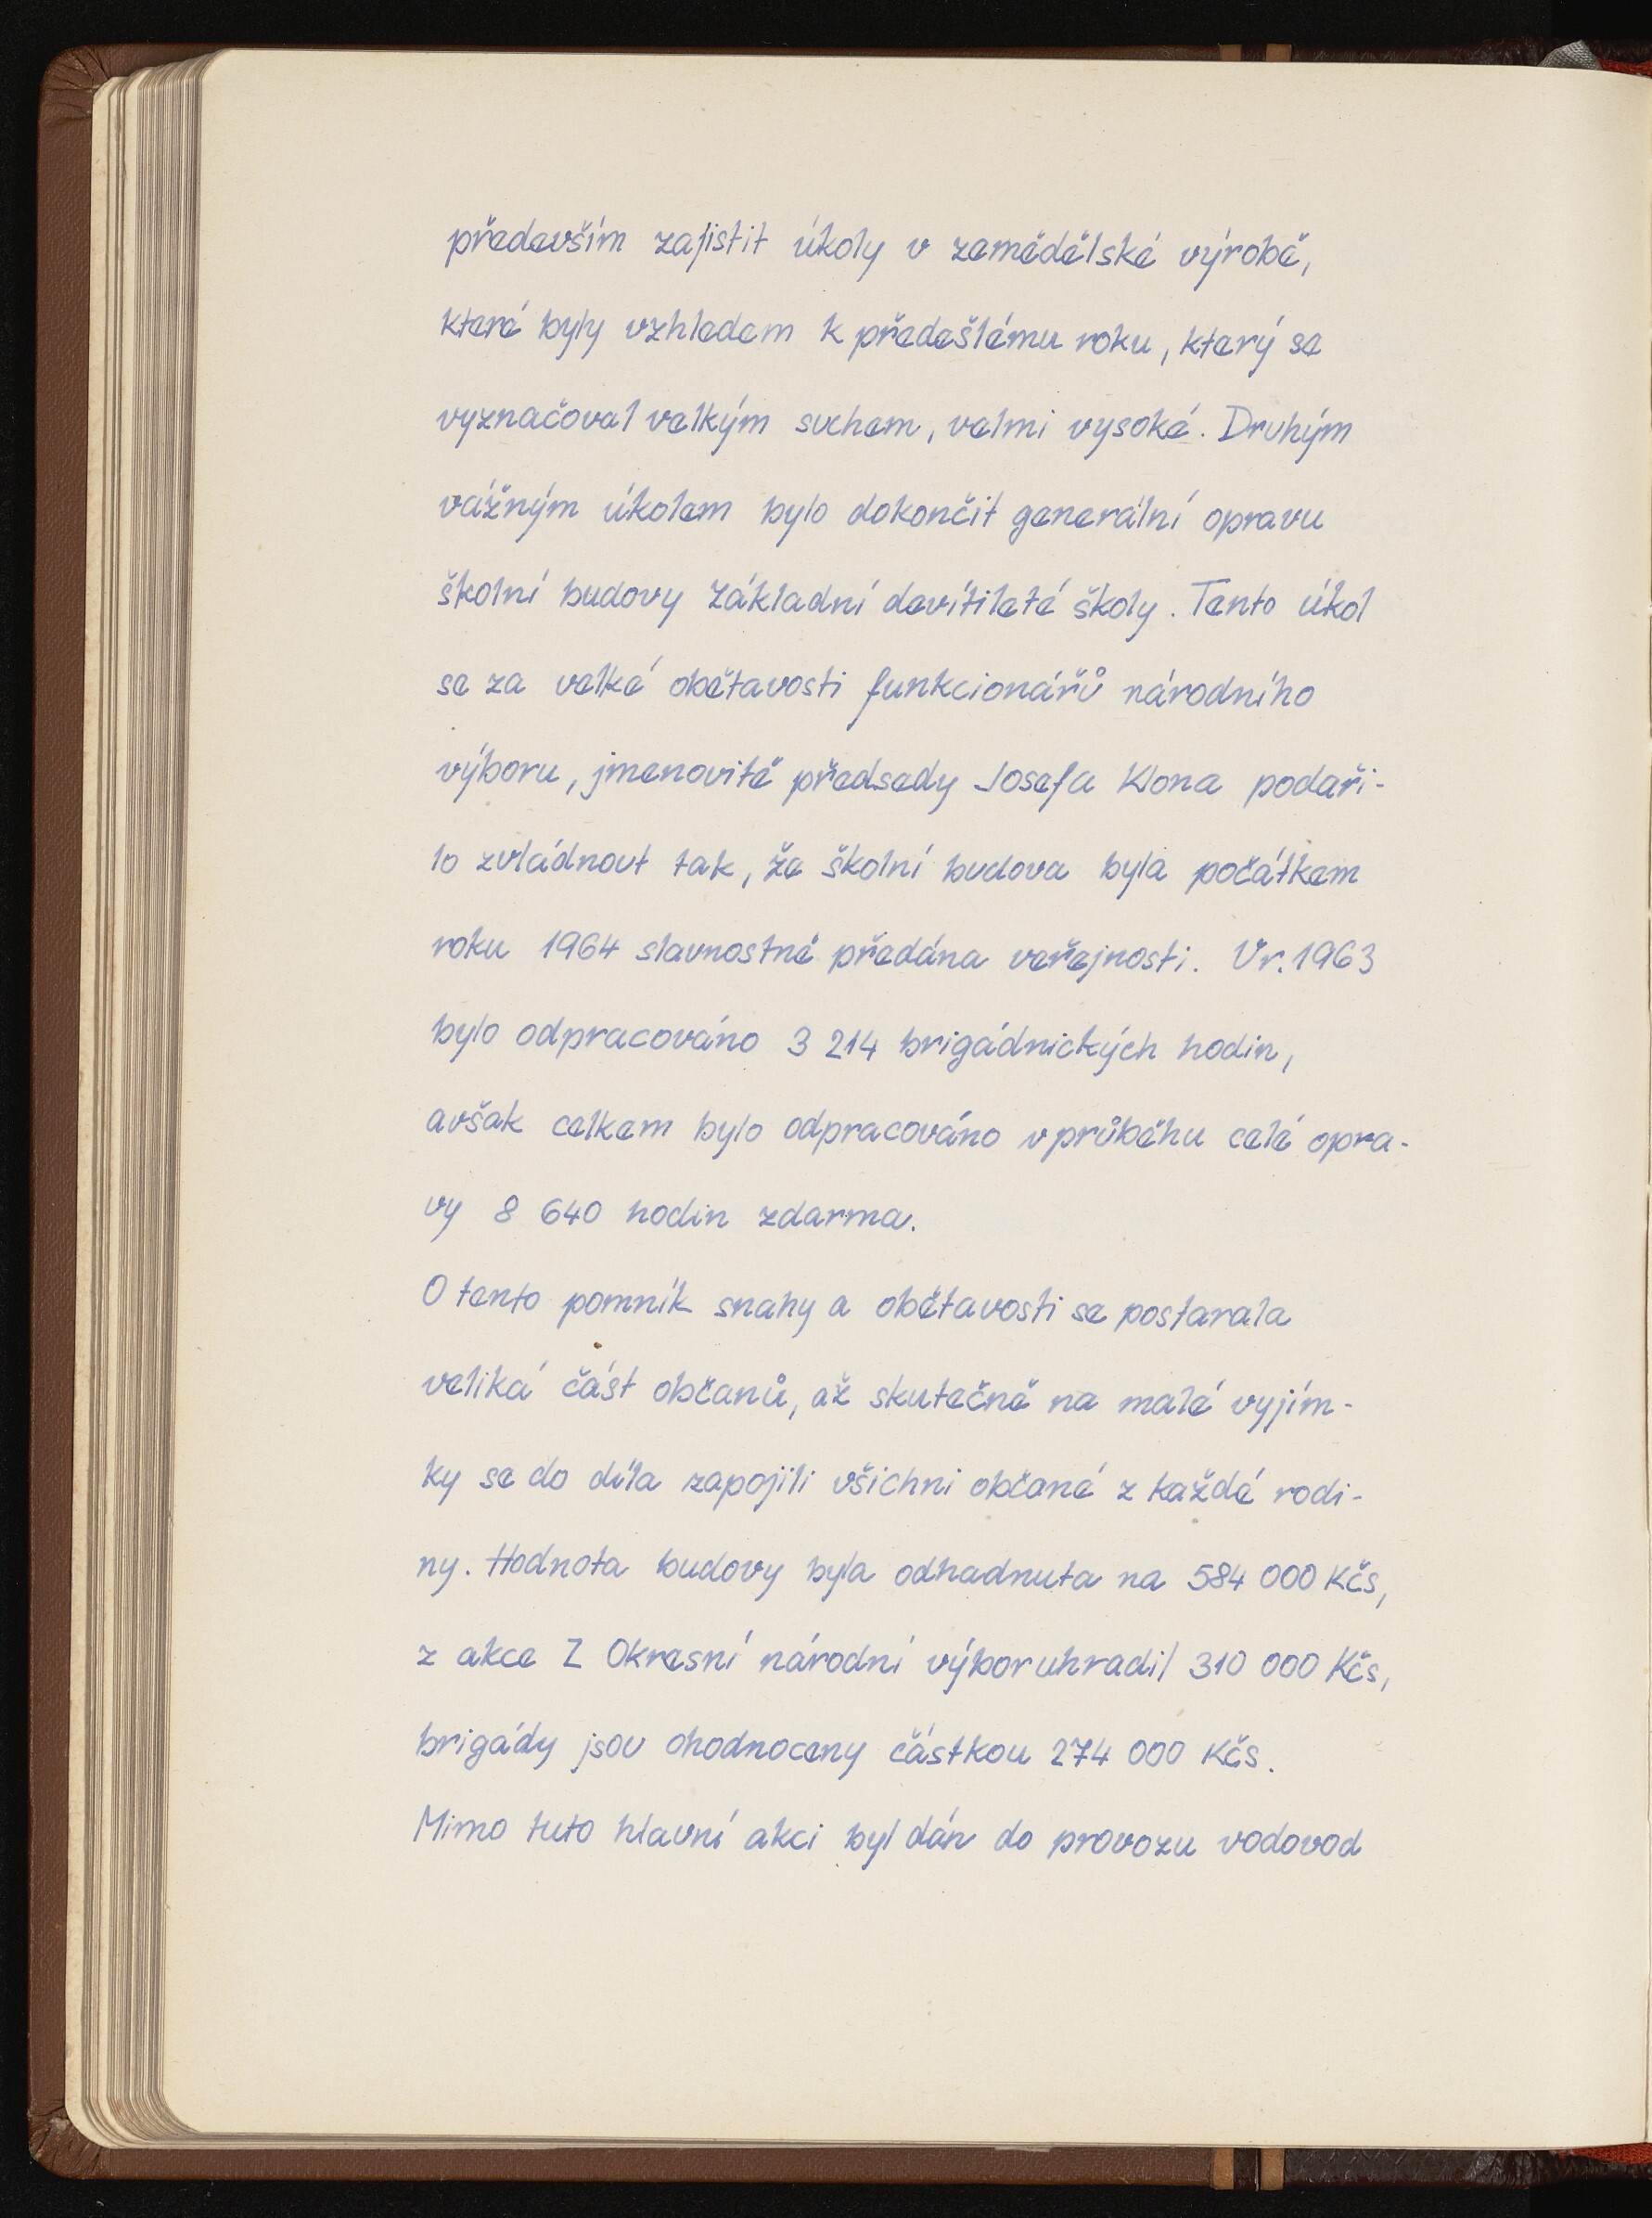 především zajistit úkoly v zemědělské výrobě,
které byly vzhledem k předešlému roku, který se
vyznačoval velkým suchem, velmi vysoké. Druhým
vážným úkolem bylo dokončit generální opravu
školní budovy základní devítileté školy. Tento úkol
se za velké obětavosti funkcionářů národního
výboru, jmenovitě předsedy Josefa Klona podaři-
lo zvládnout tak, že školní budova byla počátkem
roku 1964 slavnostně předána veřejnosti. V r. 1963
bylo odpracováno 3 214 brigádnických hodin,
avšak celkem bylo odpracováno v průběhu celé opra-
vy 8 640 hodin zdarma.
O tento pomník snahy a obětavosti se postarala
veliká část občanů, až skutečně na malé vyjím-
ky se do díla zapojili všichni občané z každé rodi-
ny. Hodnota budovy byla odhadnuta na 584 000 Kčs,
z akce Z Okresní národní výbor uhradil 310 000 Kčs,
brigády jsou ohodnoceny částkou 274 000 Kčs.
Mimo tuto hlavní akci byl dán do provozu vodovod